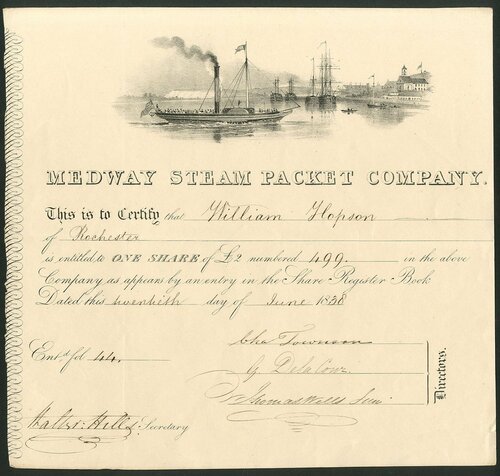 MEDWAY STEAM PACKET COMPANY.
This is to Certify that William Hopson
of Rochester
is entitled to ONE SHARE of £2 numbered 499. in the above
Company as appears by an entry in the Share Register Book
Dated this twentieth day of June 1838
Chas Townson
Ent.d fol 44.
G Delacour
Thomas Wells Senr.
Directors.
Walter Hills Secretary